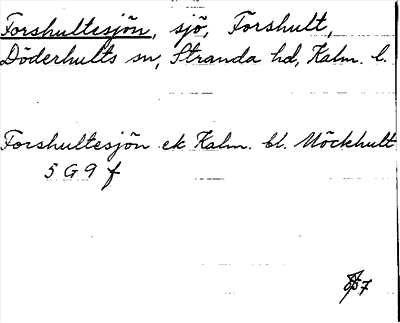 Forshultesjön, sjö, Forshult,
Döderhults sn, Stranda hd, Kalm. l.
Forshultesjön ek Kalm. bl. Möckhult
5 G 9 f